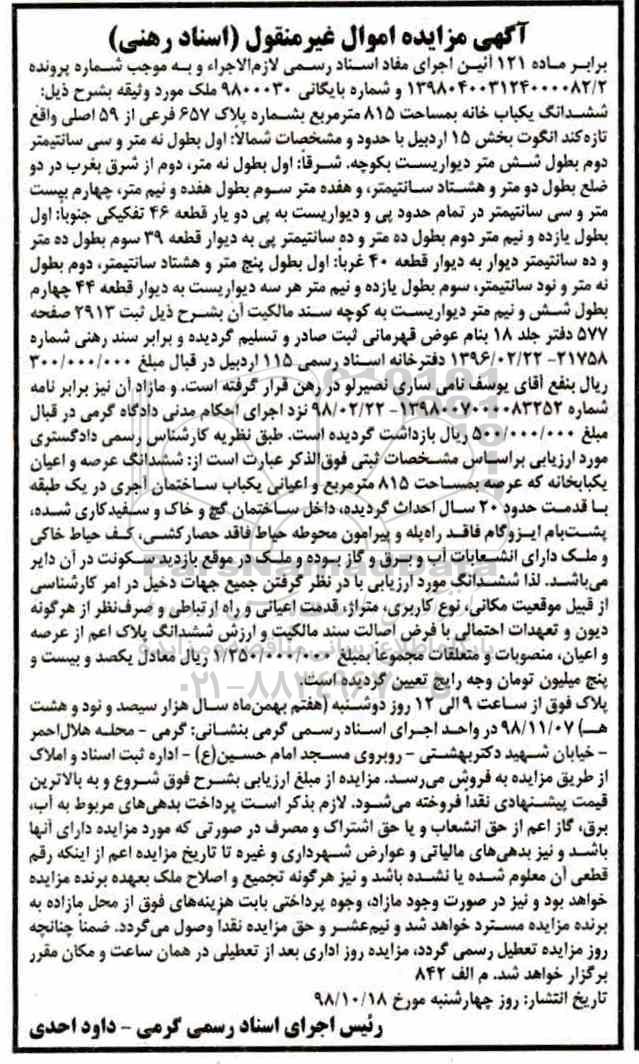 آگهی مزایده اموال غیرمنقول (اسناد رهنی)
برابر ماده ۱۲۱ آئین اجرای مفاد اسناد رسمی لازم‌الاجراء و به موجب شماره پرونده
۱۳۹۸۰۴۰۰۳۱۲۴۰۰۰۰۸۲/۲ و شماره بایگانی ۹۸۰۰۰۳۰ ملک مورد وثیقه بشرح ذیل:
ششدانگ یکباب خانه بمساحت ۸۱۵ مترمربع بشماره پلاک ۶۵۷ فرعی از ۵۹ اصلی واقع
تازه‌کند انگوت بخش ۱۵ اردبیل با حدود و مشخصات شمالاً: اول بطول نه متر و سی سانتیمتر
دوم بطول شش متر دیواریست بکوچه، شرقاً: اول بطول نه متر، دوم از شرق بغرب در دو
ضلع بطول دو متر و هشتاد سانتیمتر، و هفده متر سوم بطول هفده و نیم متر، چهارم بیست
متر و سی سانتیمتر در تمام حدود پی و دیواریست به پی دو یار قطعه ۴۶ تفکیکی جنوبا: اول
بطول یازده و نیم متر دوم بطول ده متر و ده سانتیمتر پی به دیوار قطعه ۳۹ سوم بطول ده متر
و ده سانتیمتر دیوار به دیوار قطعه ۴۰ غرباً: اول بطول پنج متر و هشتاد سانتیمتر، دوم بطول
نه متر و نود سانتیمتر، سوم بطول یازده و نیم متر هر سه دیواریست به دیوار قطعه ۴۴ چهارم
بطول شش و نیم متر دیواریست به کوچه سند مالکیت آن بشرح ذیل ثبت ۲۹۱۳ صفحه
۵۷۷ دفتر جلد ۱۸ بنام عوض قهرمانی ثبت صادر و تسلیم گردیده و برابر سند رهنی شماره
۲۱۷۵۸- ۱۳۹۶/۰۲/۲۲ دفترخانه اسناد رسمی ۱۱۵ اردبیل در قبال مبلغ ۳۰۰/۰۰۰/۰۰۰
ریال بنفع آقای یوسف نامی ساری نصیرلو در رهن قرار گرفته است. و مازاد آن نیز برابر نامه
شماره ۱۳۹۸۰۰۷۰۰۰۰۸۳۲۵۲- ۹۸/۰۲/۲۲ نزد اجرای احکام مدنی دادگاه گرمی در قبال
مبلغ ۵۰۰/۰۰۰/۰۰۰ ریال بازداشت گردیده است. طبق نظریه کارشناس رسمی دادگستری
مورد ارزیابی براساس مشخصات ثبتی فوق‌الذکر عبارت است از: ششدانگ عرصه و اعیان
یکبابخانه که عرصه بمساحت ۸۱۵ مترمربع و اعیانی یکباب ساختمان آجری در یک طبقه
با قدمت حدود ۲۰ سال احداث گردیده، داخل ساختمان گچ و خاک و سفیدکاری شده،
پشت‌بام ایزوگام فاقد راه‌پله و پیرامون محوطه حیاط فاقد حصارکشی، کف حیاط خاکی
و ملک دارای انشعابات آب و برق و گاز بوده و ملک در موقع بازدید سکونت در آن دایر
می‌باشد. لذا ششدانگ مورد ارزیابی با در نظر گرفتن جمیع جهات دخیل در امر کارشناسی
از قبیل موقعیت مکانی، نوع کاربری، متراژ، قدمت اعیانی و راه ارتباطی و صرف‌نظر از هرگونه
دیون و تعهدات احتمالی با فرض اصالت سند مالکیت و ارزش ششدانگ پلاک اعم از عرصه
و اعیان، منصوبات و متعلقات مجموعا بمبلغ ۱/۲۵۰/۰۰۰/۰۰۰ ریال معادل یکصد و بیست و
پنج میلیون تومان وجه رایج تعیین گردیده است.
پلاک فوق از ساعت ۹ الی ۱۲ روز دوشنبه (هفتم بهمن‌ماه سال هزار سیصد و نود و هشت
هـ) ۹۸/۱۱/۰۷ در واحد اجرای اسناد رسمی گرمی بنشانی: گرمی - محله هلال‌احمر
- خیابان شهید دکتربهشتی - روبروی مسجد امام حسین(ع) - اداره ثبت اسناد و املاک
از طریق مزایده به فروش می‌رسد. مزایده از مبلغ ارزیابی بشرح فوق شروع و به بالاترین
قیمت پیشنهادی نقدا فروخته می‌شود. لازم بذکر است پرداخت بدهی‌های مربوط به آب،
برق، گاز اعم از حق انشعاب و یا حق اشتراک و مصرف در صورتی که مورد مزایده دارای آنها
باشد و نیز بدهی‌های مالیاتی و عوارض شهرداری و غیره تا تاریخ مزایده اعم از اینکه رقم
قطعی آن معلوم شده یا نشده باشد و نیز هرگونه تجمیع و اصلاح ملک بعهده برنده مزایده
خواهد بود و نیز در صورت وجود مازاد، وجوه پرداختی بابت هزینه‌های فوق از محل مازاده به
برنده مزایده مسترد خواهد شد و نیم‌عشر و حق مزایده نقداً وصول می‌گردد. ضمناً چنانچه
روز مزایده تعطیل رسمی گردد، مزایده روز اداری بعد از تعطیلی در همان ساعت و مکان مقرر
برگزار خواهد شد. م الف ۸۴۲
تاریخ انتشار: روز چهارشنبه مورخ ۹۸/۱۰/۱۸
رئیس اجرای اسناد رسمی گرمی - داود احدی